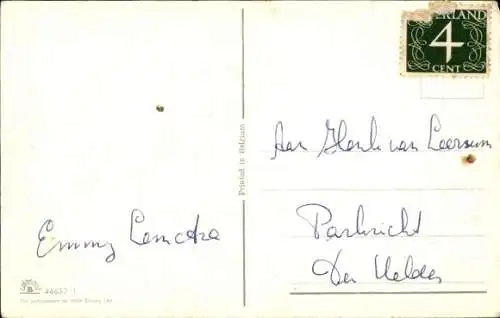 NEDERLAND
4
CENT
Printed in Belgium
Aan Henk van Leersum
Parkzicht
Den Helder
Emmy
44637/1